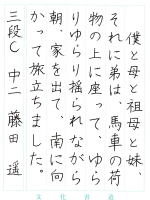 僕と母と祖母と妹、
それに弟は、馬車の荷
物の上に座って、ゆら
りゆらり揺られながら
朝、家を出て、南に向
かって旅立ちました。
三段C 中二 藤田 遥
文化書道